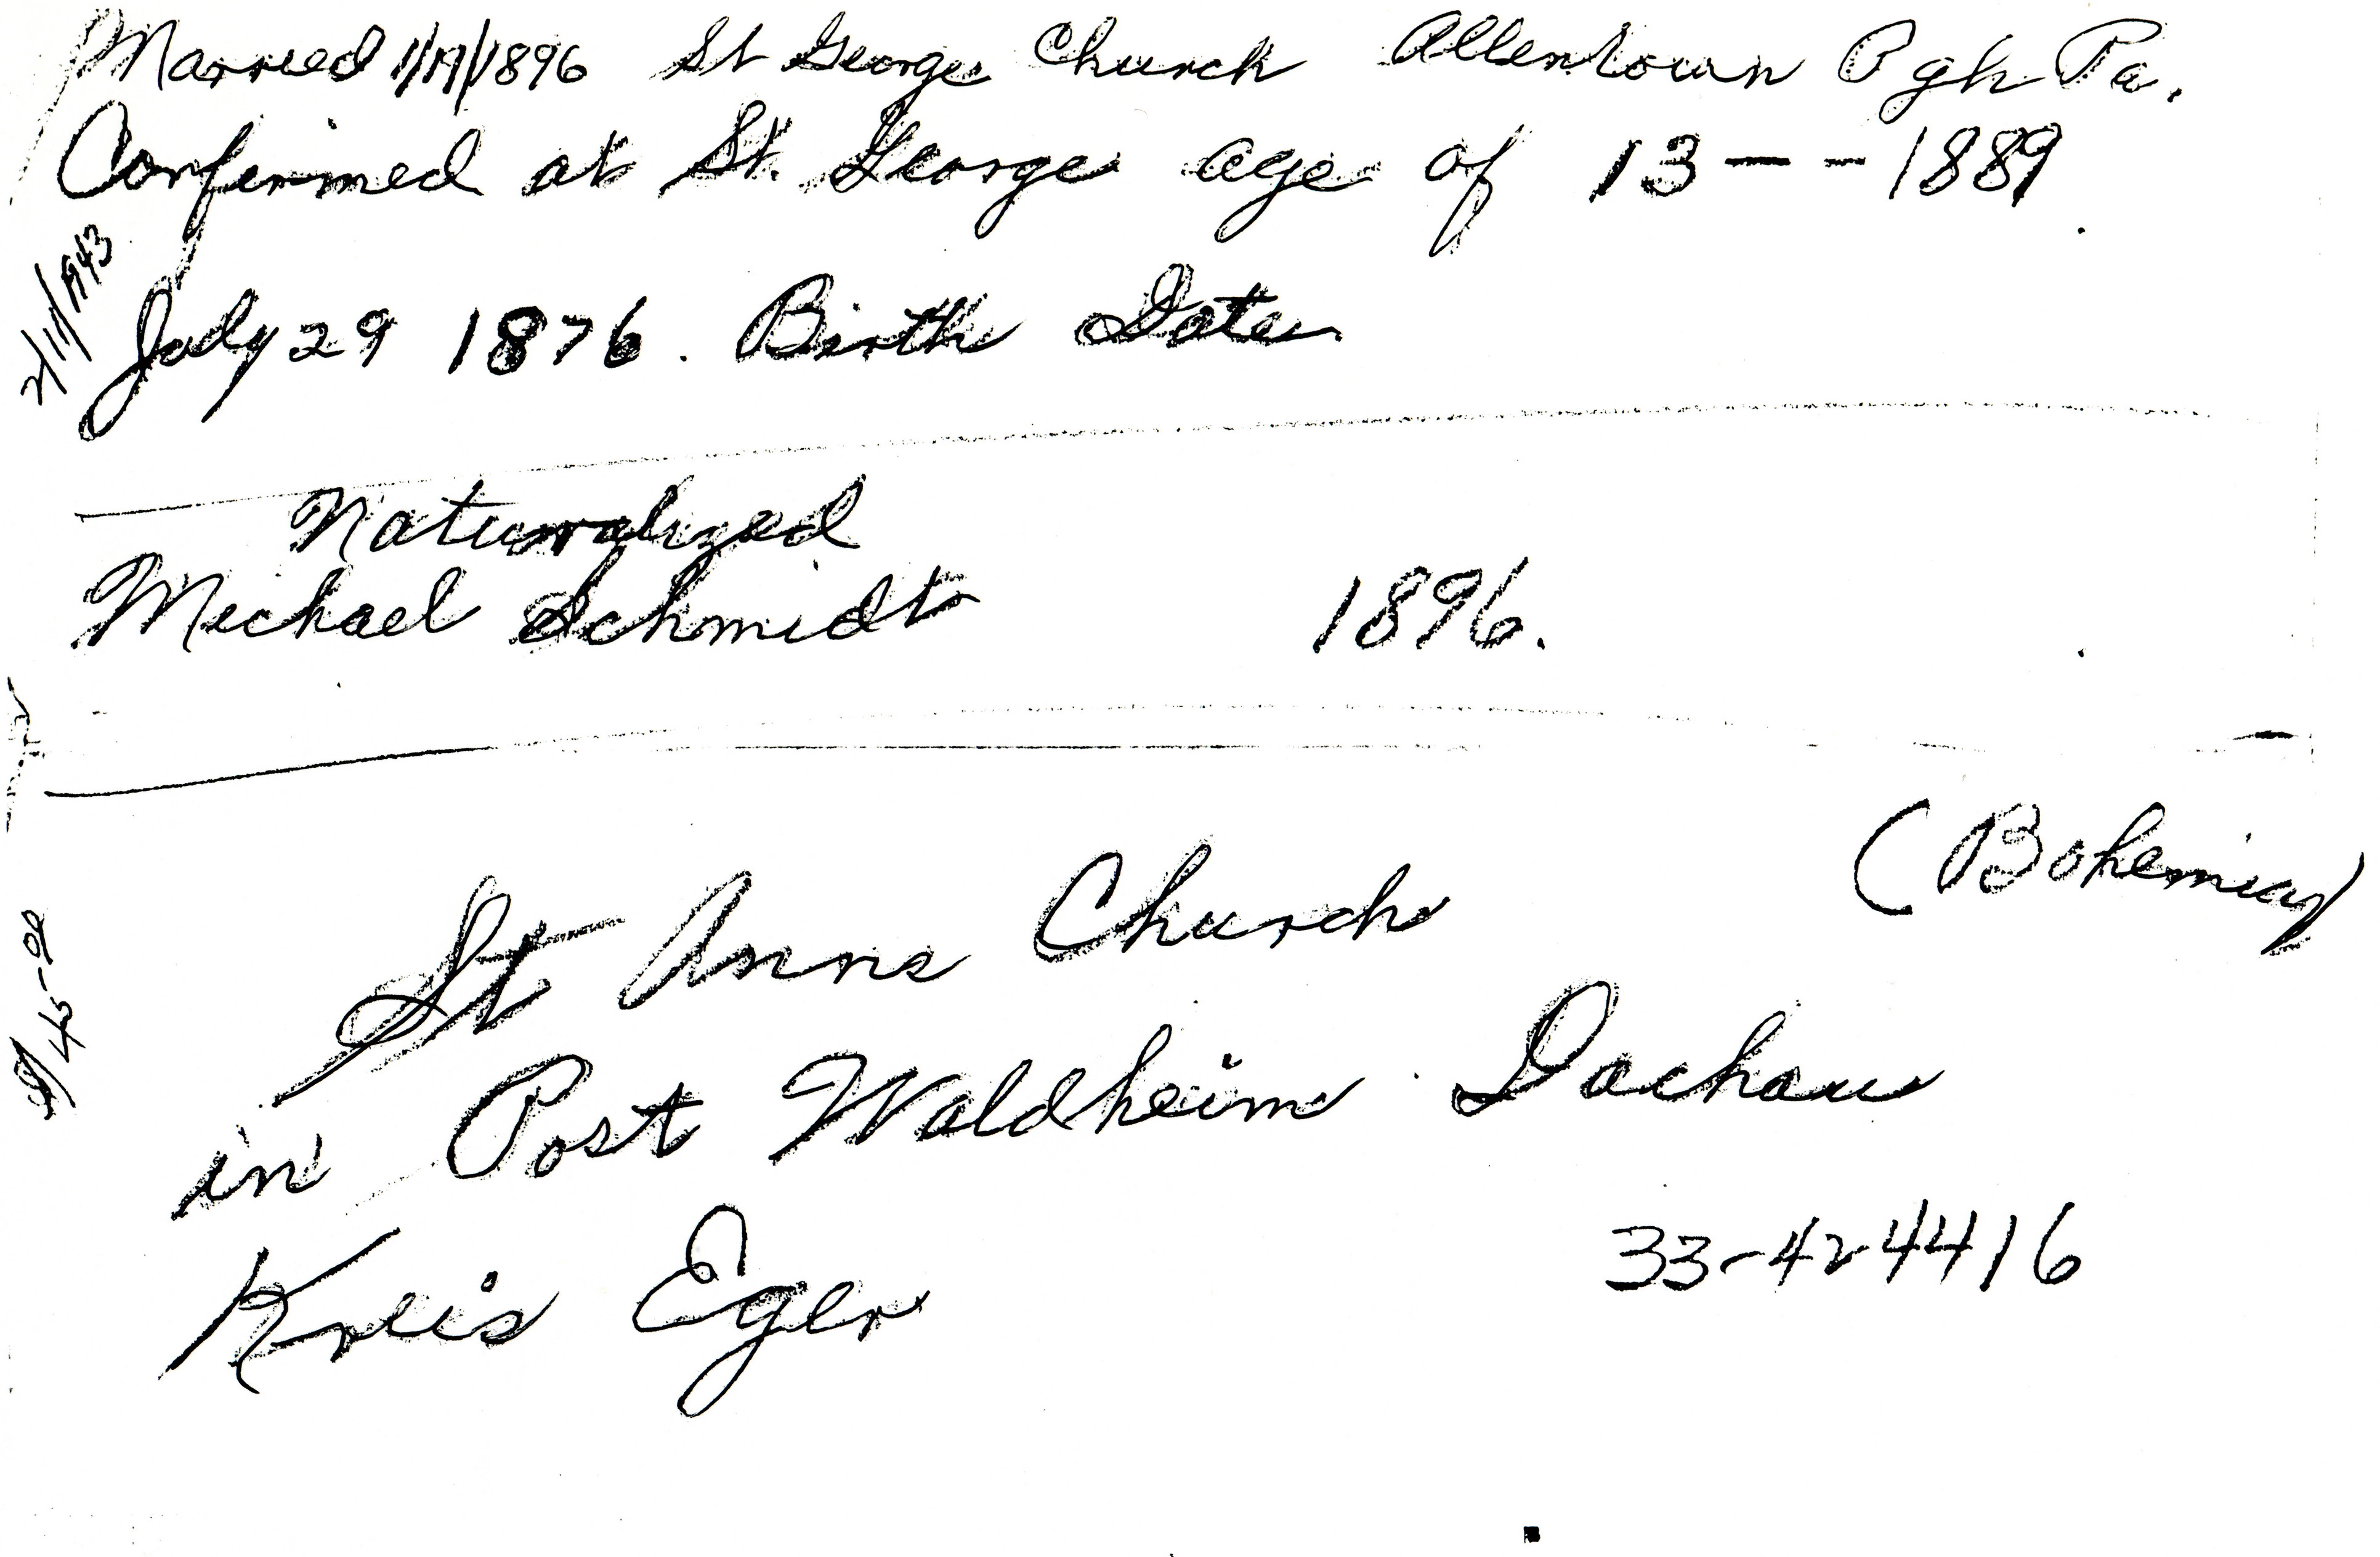 Married 1/19/1896 St George Church Allentown Pgh Pa.
Confirmed at St. George age of 13 - - 1889
July 29 1876. Birth Date
Naturalized
Michael Schmidt 1896.
(Bohemia)
St Anns Church
in Post Waldheim Dachau
Kreis Eger
33-424416